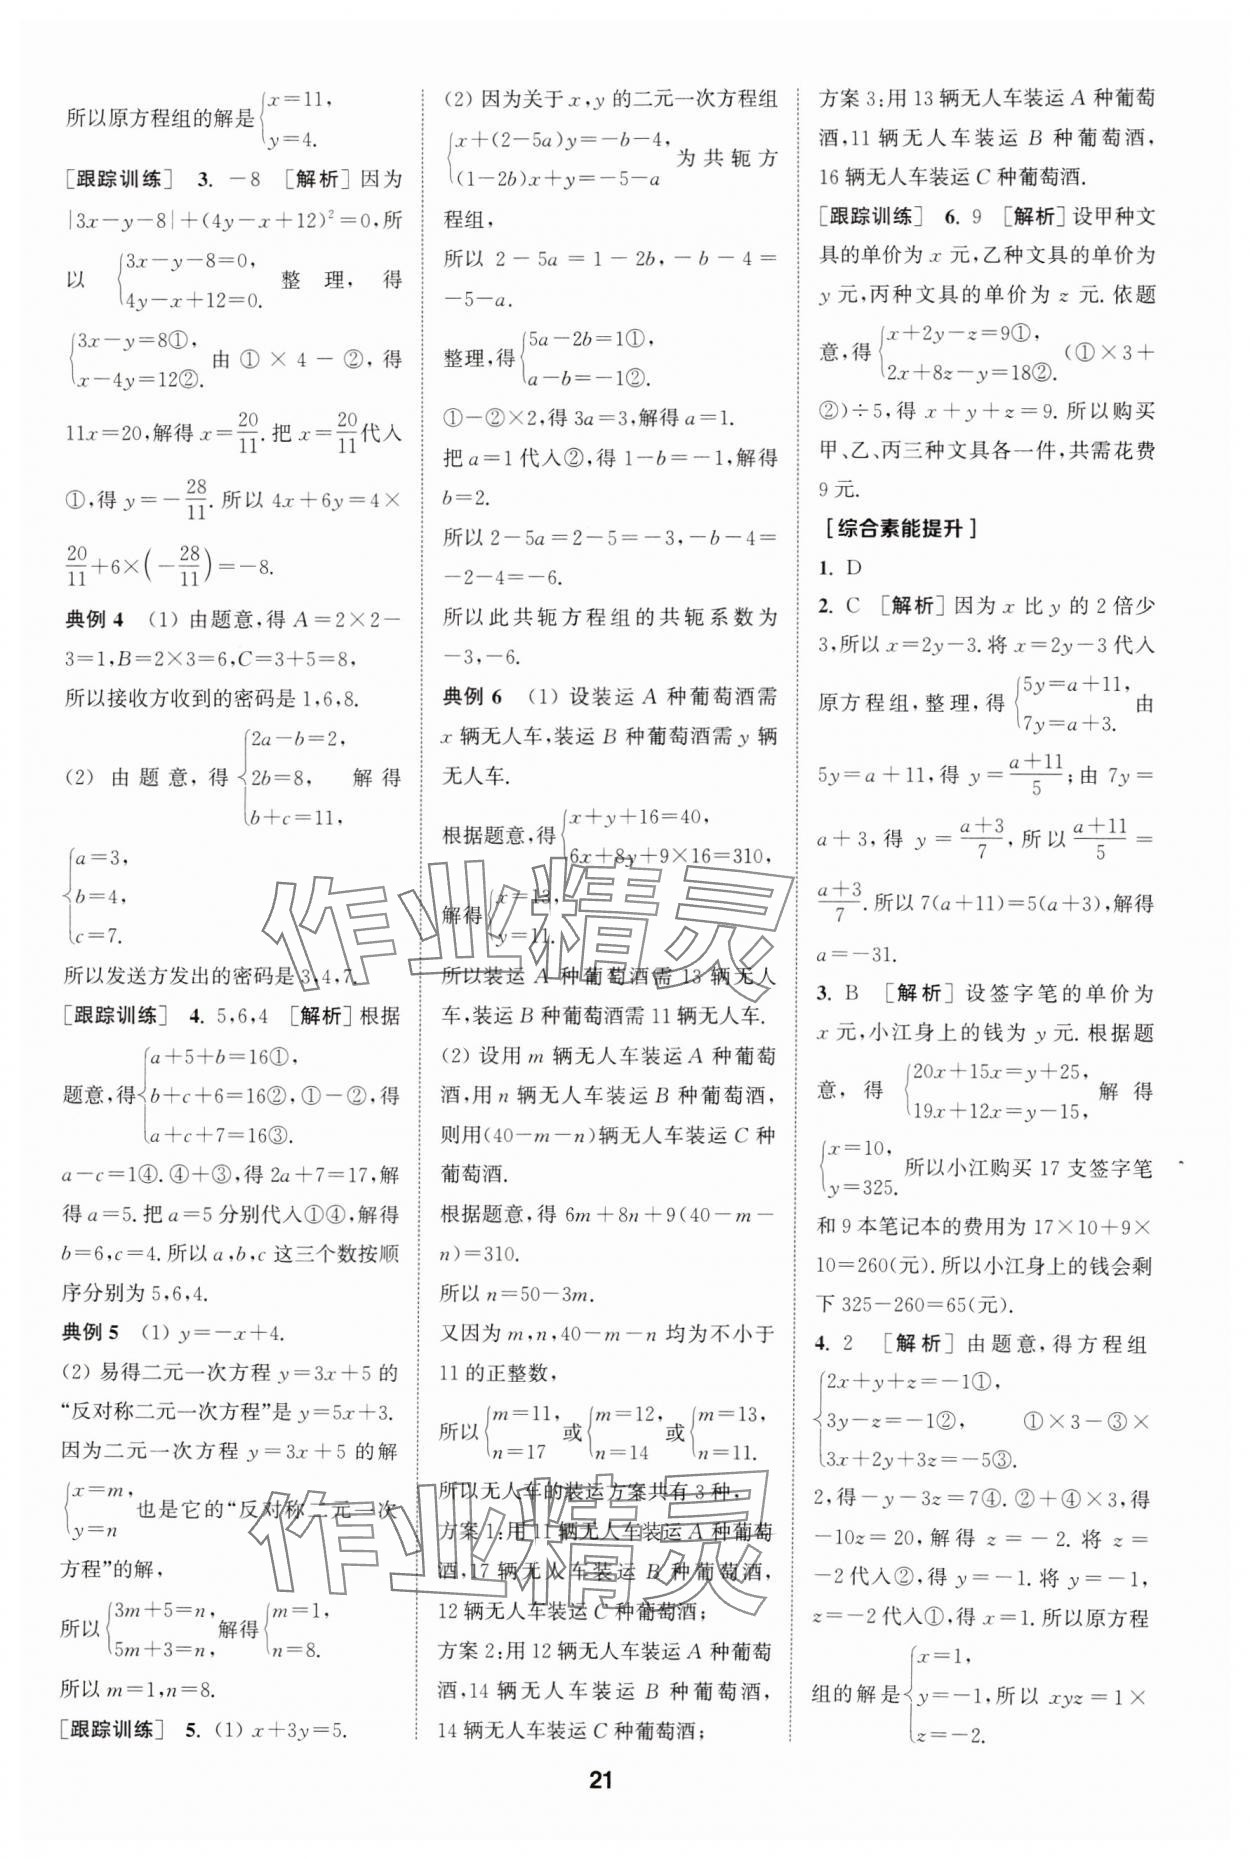 所以原方程组的解是{x=11,
y=4.
[跟踪训练] 3. －8 [解析]因为
|3x－y－8|＋(4y－x＋12)²＝0,所
以 {3x－y－8=0,
4y－x＋12=0. 整理,得
{3x－y=8①,
x－4y=12②. 由①×4－②,得
11x=20,解得 x=20/11.把 x=20/11代入
①,得 y=－28/11.所以 4x＋6y=4×
20/11＋6×(－28/11)=－8.
典例 4 (1) 由题意,得 A=2×2－
3=1,B=2×3=6,C=3+5=8,
所以接收方收到的密码是 1,6,8.
(2) 由题意,得 {2a－b=2,
2b=8,
b＋c=11, 解得
{a=3,
b=4,
c=7.
所以发送方发出的密码是 3,4,7.
[跟踪训练] 4. 5,6,4 [解析]根据
题意,得{a＋5＋b=16①,
b＋c＋6=16②,
a＋c＋7=16③. ①－②,得
a－c=1④.④＋③,得 2a＋7=17,解
得 a=5.把 a=5 分别代入①④,解得
b=6,c=4.所以 a,b,c 这三个数按顺
序分别为 5,6,4.
典例 5 (1) y=－x＋4.
(2) 易得二元一次方程 y=3x＋5 的
“反对称二元一次方程”是 y=5x＋3.
因为二元一次方程 y=3x＋5 的解
{x=m,
y=n 也是它的“反对称二元一次
方程”的解,
所以{3m＋5=n,
5m＋3=n, 解得{m=1,
n=8.
所以 m=1,n=8.
[跟踪训练] 5. (1) x＋3y=5.
(2) 因为关于 x,y 的二元一次方程组
{x＋(2－5a)y=－b－4,
(1－2b)x＋y=－5－a 为共轭方
程组,
所以 2－5a=1－2b,－b－4=
－5－a.
整理,得{5a－2b=1①,
a－b=－1②.
①－②×2,得 3a=3,解得 a=1.
把 a=1 代入②,得 1－b=－1,解得
b=2.
所以 2－5a=2－5=－3,－b－4=
－2－4=－6.
所以此共轭方程组的共轭系数为
－3,－6.
典例 6 (1) 设装运 A 种葡萄酒需
x 辆无人车,装运 B 种葡萄酒需 y 辆
无人车.
根据题意,得{x＋y＋16=40,
6x＋8y＋9×16=310,
解得{x=13,
y=11.
所以装运 A 种葡萄酒需 13 辆无人
车,装运 B 种葡萄酒需 11 辆无人车.
(2) 设用 m 辆无人车装运 A 种葡萄
酒,用 n 辆无人车装运 B 种葡萄酒,
则用(40－m－n)辆无人车装运 C 种
葡萄酒.
根据题意,得 6m＋8n＋9(40－m－
n)=310.
所以 n=50－3m.
又因为 m,n,40－m－n 均为不小于
11 的正整数,
所以{m=11,
n=17 或{m=12,
n=14 或{m=13,
n=11.
所以无人车的装运方案共有 3 种,
方案 1:用 11 辆无人车装运 A 种葡萄
酒,17 辆无人车装运 B 种葡萄酒,
12 辆无人车装运 C 种葡萄酒;
方案 2:用 12 辆无人车装运 A 种葡萄
酒,14 辆无人车装运 B 种葡萄酒,
14 辆无人车装运 C 种葡萄酒;
方案 3:用 13 辆无人车装运 A 种葡萄
酒,11 辆无人车装运 B 种葡萄酒,
16 辆无人车装运 C 种葡萄酒.
[跟踪训练] 6. 9 [解析]设甲种文
具的单价为 x 元,乙种文具的单价为
y 元,丙种文具的单价为 z 元.依题
意,得{x＋2y－z=9①,
2x＋8z－y=18②. (①×3＋
②)÷5,得 x＋y＋z=9.所以购买
甲、乙、丙三种文具各一件,共需花费
9 元.
[综合素能提升]
1. D
2. C [解析]因为 x 比 y 的 2 倍少
3,所以 x=2y－3.将 x=2y－3 代入
原方程组,整理,得{5y=a＋11,
7y=a＋3. 由
5y=a＋11,得 y=(a＋11)/5;由 7y=
a＋3,得 y=(a＋3)/7,所以(a＋11)/5=
(a＋3)/7.所以 7(a＋11)=5(a＋3),解得
a=－31.
3. B [解析]设签字笔的单价为
x 元,小江身上的钱为 y 元.根据题
意,得{20x＋15x=y＋25,
19x＋12x=y－15, 解得
{x=10,
y=325. 所以小江购买 17 支签字笔
和 9 本笔记本的费用为 17×10＋9×
10=260(元).所以小江身上的钱会剩
下 325－260=65(元).
4. 2 [解析]由题意,得方程组
{2x＋y＋z=－1①,
3y－z=－1②,
3x＋2y＋3z=－5③. ①×3－③×
2,得－y－3z=7④.②＋④×3,得
－10z=20,解得 z=－2.将 z=
－2 代入②,得 y=－1.将 y=－1,
z=－2 代入①,得 x=1.所以原方程
组的解是{x=1,
y=－1,
z=－2. 所以 xyz=1×
21
作业精灵
作业精灵